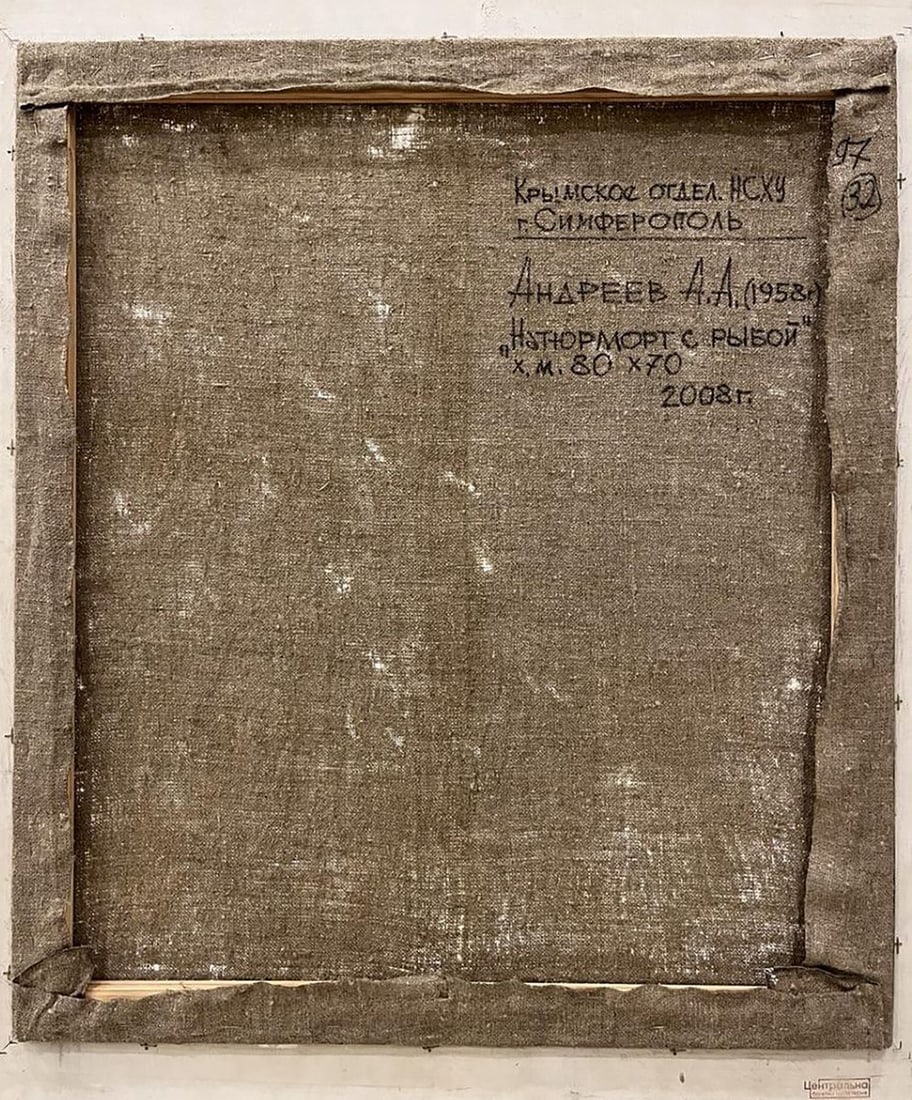 97
32
Крымское отдел. НСХУ
г. Симферополь
Андреев А.А. (1958г)
"Натюрморт с рыбой"
х.м. 80 х70
2008г.
Центральна